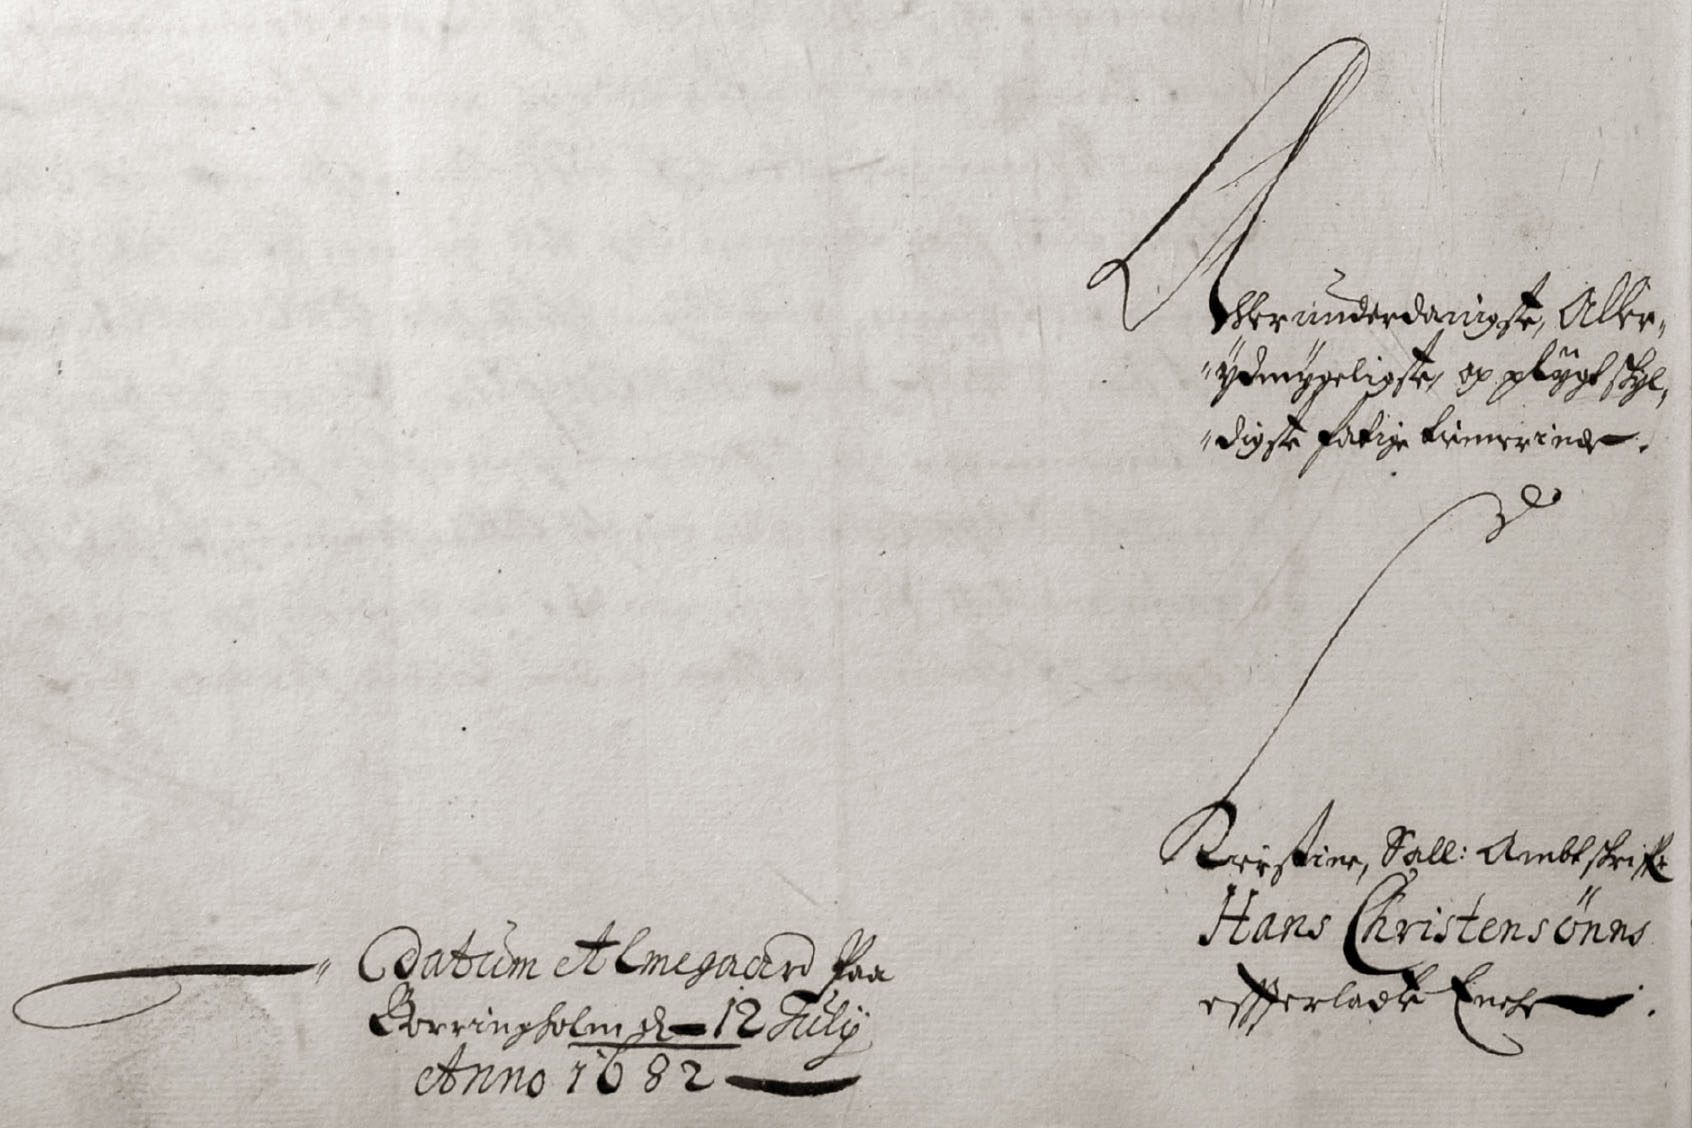 Allerunderdanigste, Aller-
ydmygeligste, op plygt skyl-
digste fatige tienerinde
Kirstine, Sall: Ambtskriffr
Hans Christensönns
effterladte Enche
Datum Almegaard Paa
Borringholm d 12 July
Anno 1682